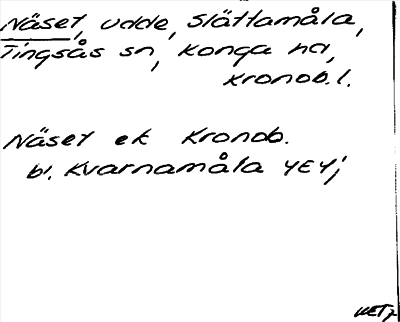 Näset, udde, Slättamåla,
Tingsås sn, Konga hd,
Kronob.l.
Näset ek Kronob.
bl. Kvarnamåla